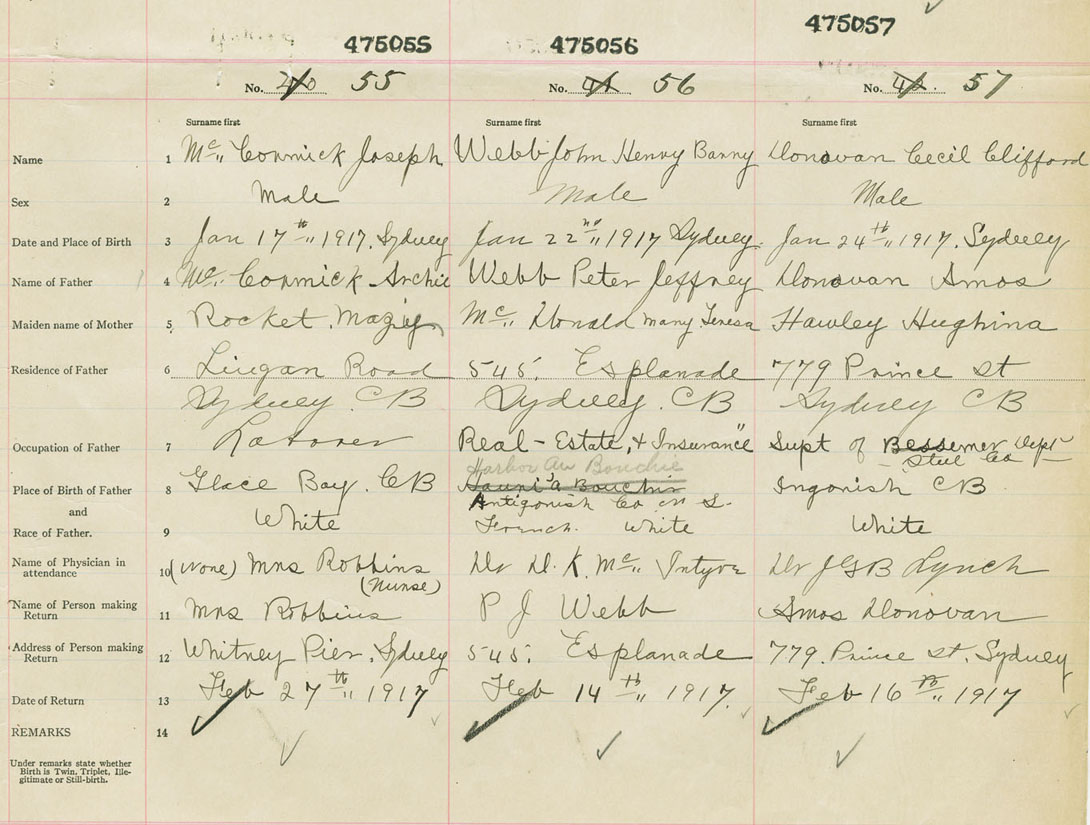 475055 475056 475057
No. 40 55 No. 41 56 No. 42. 57
Surname first Surname first Surname first
Name 1 Mc„ Cormick Joseph Webb John Henry Barry Donovan Cecil Clifford
Sex 2 Male Male Male
Date and Place of Birth 3 Jan 17th„ 1917. Sydney Jan 22nd„ 1917 Sydney. Jan 24th„ 1917. Sydney
Name of Father 4 Mc„ Cormick Archie Webb Peter Jeffrey Donovan Amos
Maiden name of Mother 5 Rocket. Mazie Mc„ Donald Mary Teresa Hawley Hughina
Residence of Father 6 Lingan Road 545. Esplanade 779 Prince St
Sydney. CB Sydney. CB Sydney CB
Occupation of Father 7 Laborer Real-Estate, & Insurance Supt of Bessemer Dept
Steel Co
Harbor Au Bouchie
Place of Birth of Father 8 Glace Bay. CB Bouchie Ingonish CB
and Antigonish Co N S.
Race of Father. 9 White French. White White
Name of Physician in
attendance 10 (none) Mrs Robbins Dr D. K. Mc„ Intyre Dr JGB Lynch
(Nurse)
Name of Person making
Return 11 Mrs Robbins P J Webb Amos Donovan
Address of Person making
Return 12 Whitney Pier. Sydney 545. Esplanade 779. Prince St. Sydney
Date of Return 13 Feb 27th„ 1917 Feb 14th„ 1917. Feb 16th„ 1917
REMARKS 14
Under remarks state whether
Birth is Twin, Triplet, Ille-
gitimate or Still-birth.